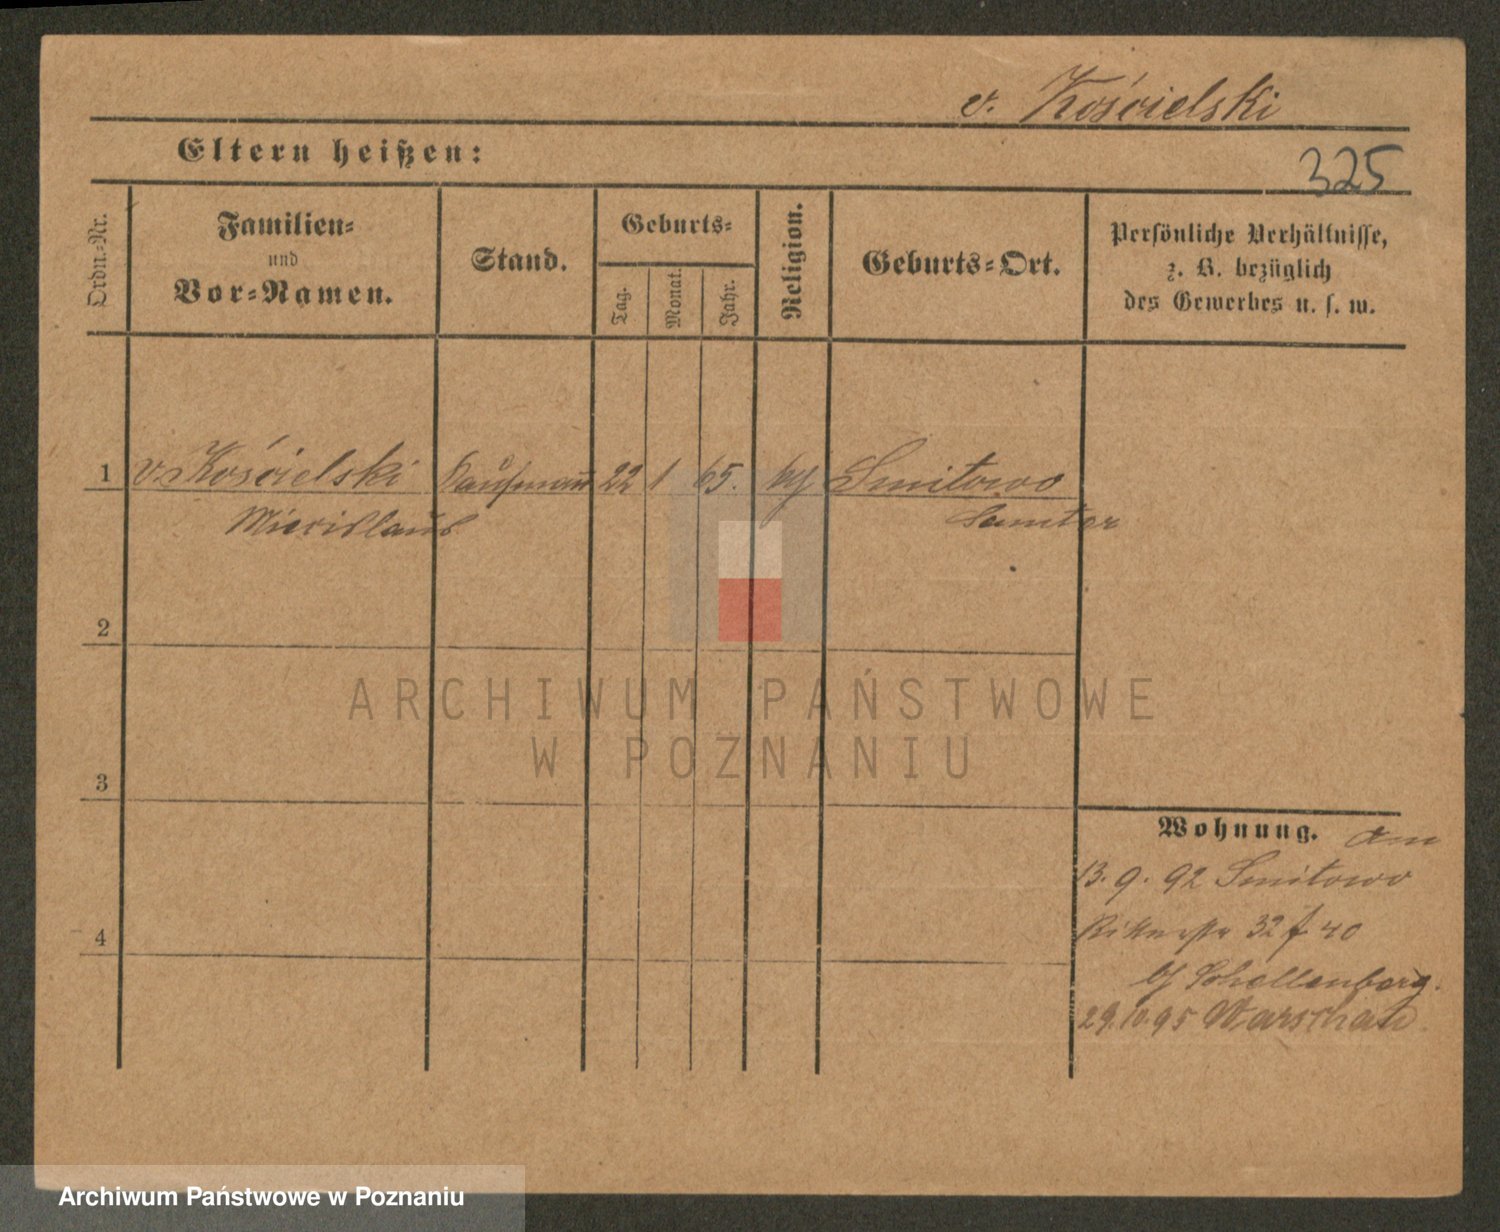 v. Kościelski
Eltern heißen:
325
Ordn.-Nr.
Familien-
und
Vor-Namen.
Stand.
Geburts-
Tag.
Monat.
Jahr.
Religion.
Geburts-Ort.
Persönliche Verhältnisse,
z. B. bezüglich
des Gewerbes u. s. w.
1 v. Kościelski Kaufmann 22 1 65. kth Smitowo
Miecislaus Samter
2
3
4
Wohnung. am
13. 9. 92 Smitowo
Ritterstr 32 40
b/ Schellenberg.
29.10.95 Warschau.
ARCHIWUM PAŃSTWOWE
W POZNANIU
Archiwum Państwowe w Poznaniu